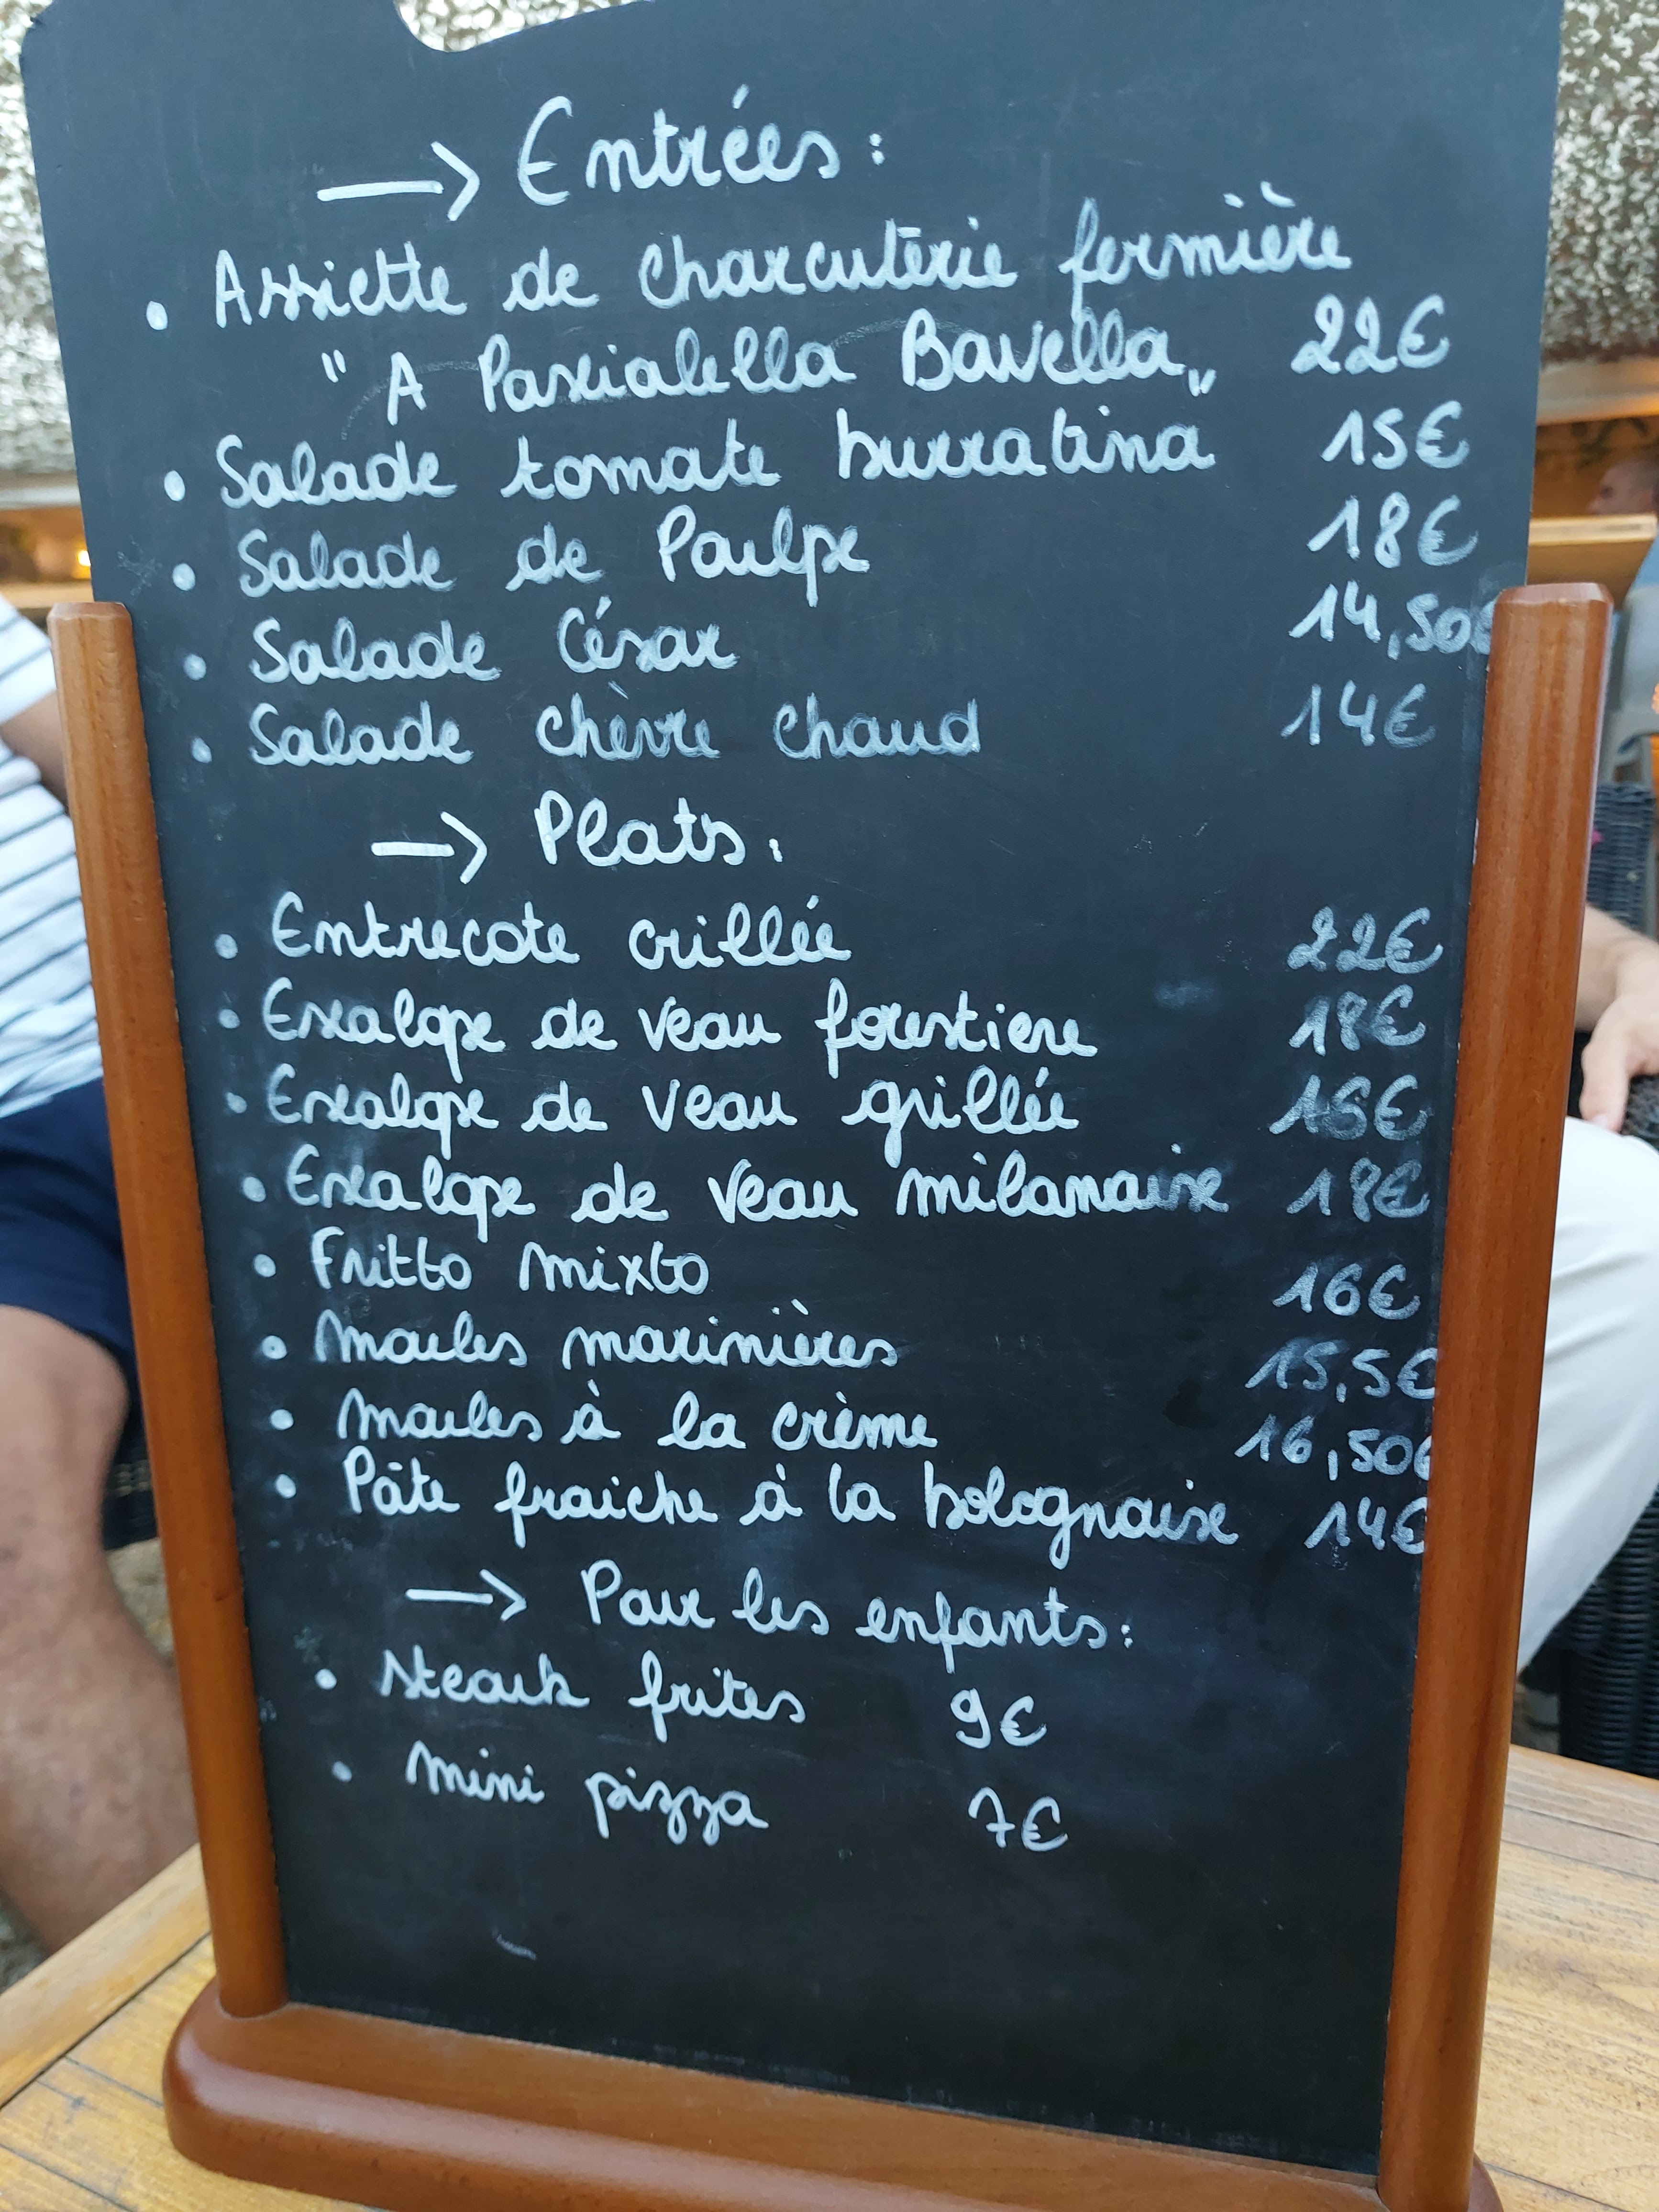 → Entrées :
• Assiette de charcuterie fermière
" A Pascialella Bavella„ 22€
• Salade tomate burratina 15€
• Salade de Poulpe 18€
• Salade César 14,50€
• Salade chèvre chaud 14€
→ Plats :
• Entrecote grillée 22€
• Escalope de veau forestiere 18€
• Escalope de veau grillée 16€
• Escalope de veau milanaise 18€
• Fritto mixto 16€
• Moules marinières 15,5€
• Moules à la crème 16,50€
• Pâte fraiche à la bolognaise 14€
→ Pour les enfants :
• Steack frites 9€
• Mini pizza 7€